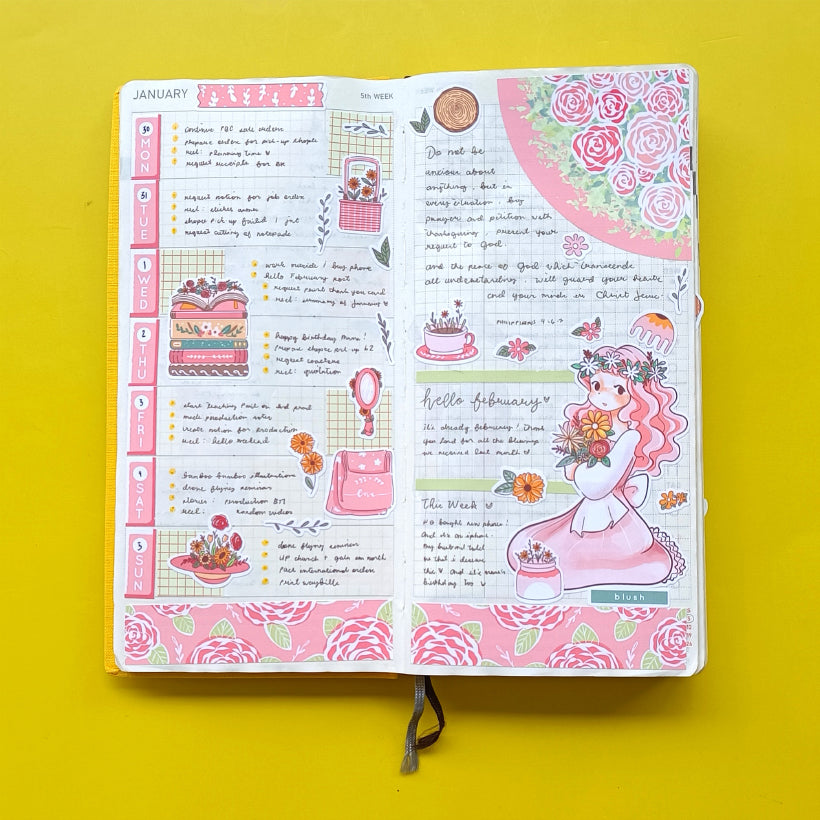 JANUARY
5th WEEK
30
MON
continue PBC sale orders
prepare orders for pick-up shopee
reel: planning time
request receipts for BK
31
TUE
request notion for job order
reel: sticker
shopee pick up failed 1 jnt
request cutting of notepads
1
WED
work outside | buy phone
hello February post
request print thank you card
reel: summary of january
2
THU
happy birthday Mama!
prepare shopee pick up 62
request coasters
reel: quotation
3
FRI
start teaching Paul on 3rd
made production notes
create notion for production
reel: hello weekend
4
SAT
bamboo bamboo
drone flying seminar
stories: production BTS
reel: random videos
love
5
SUN
drone flying seminar
UP church + gala sm north
pack international orders
print waybills
Do not be
anxious about
anything, but in
every situation, by
prayer and petition with
thanksgiving, present your
request to God.
and the peace of God which transcends
all understanding, will guard your hearts
and your minds in Christ Jesus.
PHILIPPIANS 4:6-7
hello february
it's already february! thank
you Lord for all the blessings
we received last month.
This Week
bought new phone!
And it's an iphone.
My husband told
me that i deserve
the and it's mama's
birthday too
blush
5
12
19
26